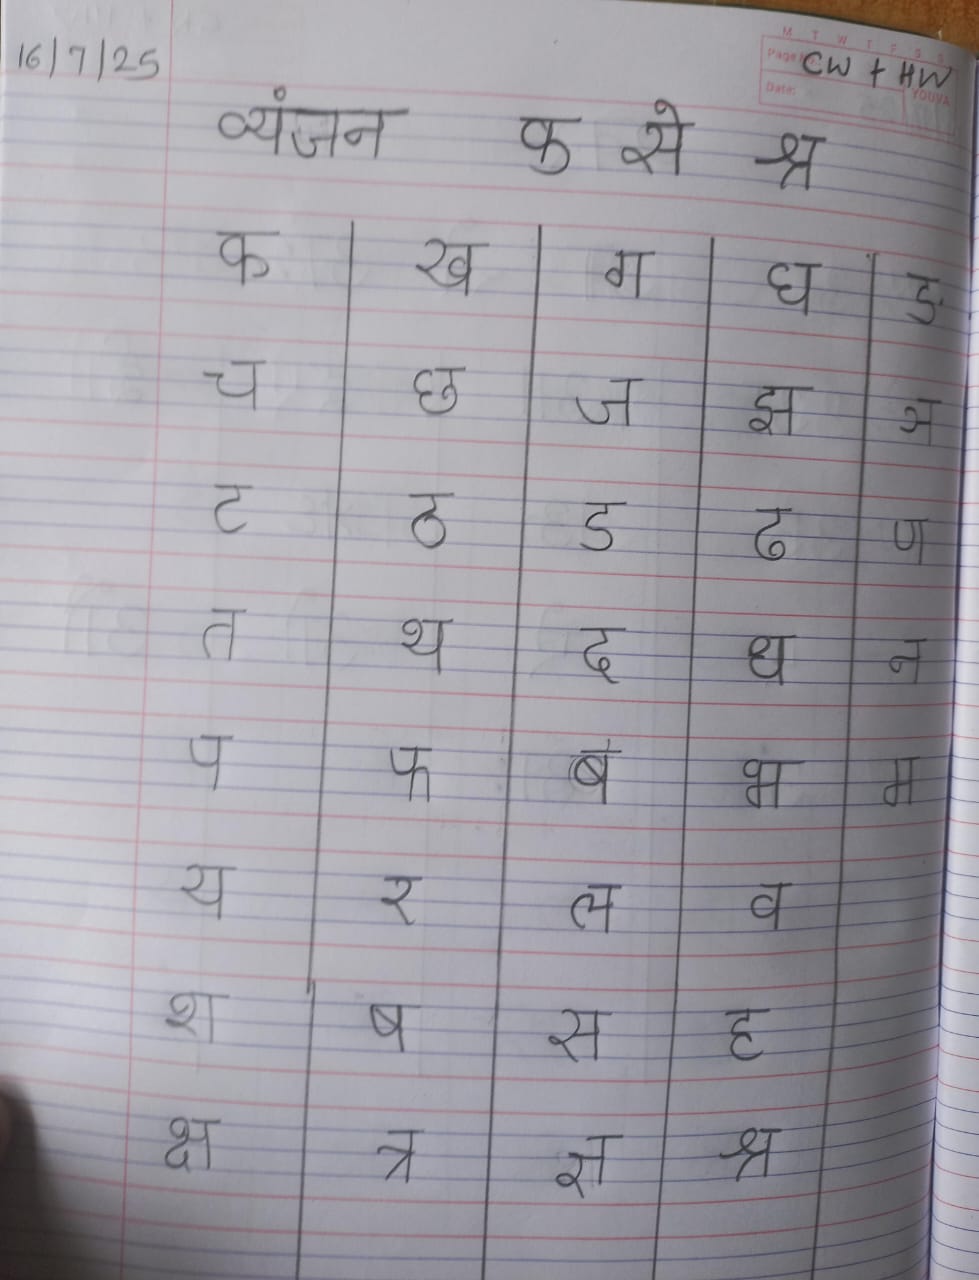 M T W T F S S
Page No.: CW + HW
Date: YOUVA
16/7/25
व्यंजन क से श्र
क ख ग घ ङ
च छ ज झ ञ
ट ठ ड ढ ण
त थ द ध न
प फ ब भ म
य र ल व
श ष स ह
क्ष त्र ज्ञ श्र